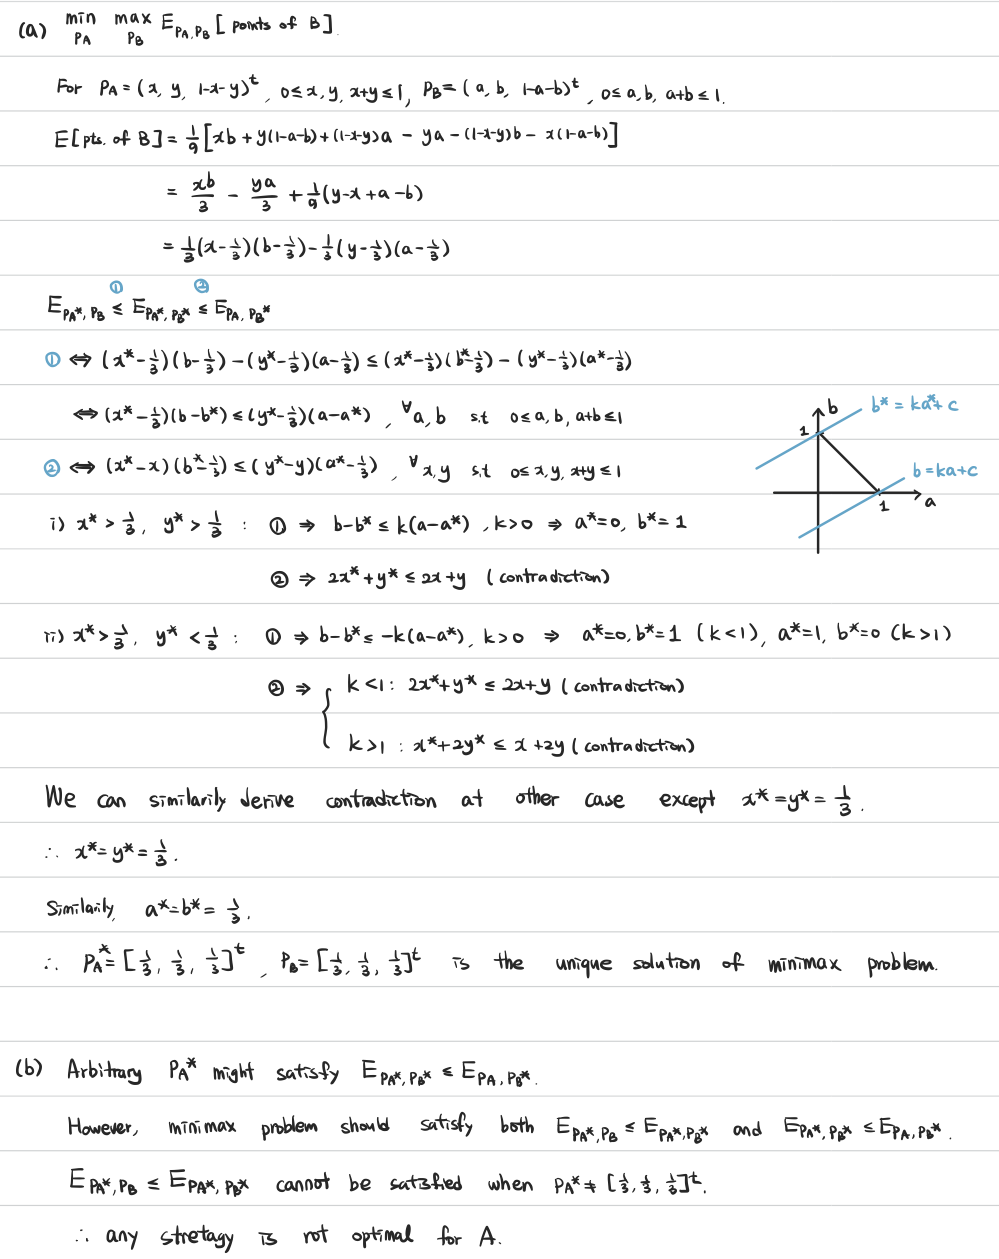 (a) min max E_{P_A,P_B} [points of B].
P_A P_B
For P_A = (x, y, 1-x-y)^t, 0≤x,y, x+y≤1, P_B = (a, b, 1-a-b)^t, 0≤a,b, a+b≤1.
E[pts. of B] = 1/9 [xb + y(1-a-b) + (1-x-y)a - ya - (1-x-y)b - x(1-a-b)]
= xb/3 - ya/3 + 1/9(y-x+a-b)
= 1/3(x-1/3)(b-1/3) - 1/3(y-1/3)(a-1/3)
① ②
E_{P_A*,P_B} ≤ E_{P_A*,P_B*} ≤ E_{P_A,P_B*}
① ⇔ (x*-1/3)(b-1/3) - (y*-1/3)(a-1/3) ≤ (x*-1/3)(b*-1/3) - (y*-1/3)(a*-1/3)
⇔ (x*-1/3)(b-b*) ≤ (y*-1/3)(a-a*), ∀a,b s.t 0≤a,b, a+b≤1
② ⇔ (x*-x)(b*-1/3) ≤ (y*-y)(a*-1/3), ∀x,y s.t 0≤x,y, x+y≤1
b
b* = ka*+c
1
b=ka+c
a
1
i) x* > 1/3, y* > 1/3 : ① ⇒ b-b* ≤ k(a-a*), k>0 ⇒ a*=0, b*=1
② ⇒ 2x*+y* ≤ 2x+y (contradiction)
ii) x* > 1/3, y* < 1/3 : ① ⇒ b-b* ≤ -k(a-a*), k>0 ⇒ a*=0, b*=1 (k<1), a*=1, b*=0 (k>1)
② ⇒ { k<1 : 2x*+y* ≤ 2x+y (contradiction)
k>1 : x*+2y* ≤ x+2y (contradiction)
We can similarily derive contradiction at other case except x*=y*=1/3.
∴ x*=y*=1/3.
Similarily, a*=b*=1/3.
∴ P_A* = [1/3, 1/3, 1/3]^t, P_B = [1/3, 1/3, 1/3]^t is the unique solution of minimax problem.
(b) Arbitrary P_A* might satisfy E_{P_A*,P_B*} ≤ E_{P_A,P_B*}.
However, minimax problem should satisfy both E_{P_A*,P_B} ≤ E_{P_A*,P_B*} and E_{P_A*,P_B*} ≤ E_{P_A,P_B*}.
E_{P_A*,P_B} ≤ E_{P_A*,P_B*} cannot be satisfied when P_A* ≠ [1/3, 1/3, 1/3]^t.
∴ any stretagy is not optimal for A.